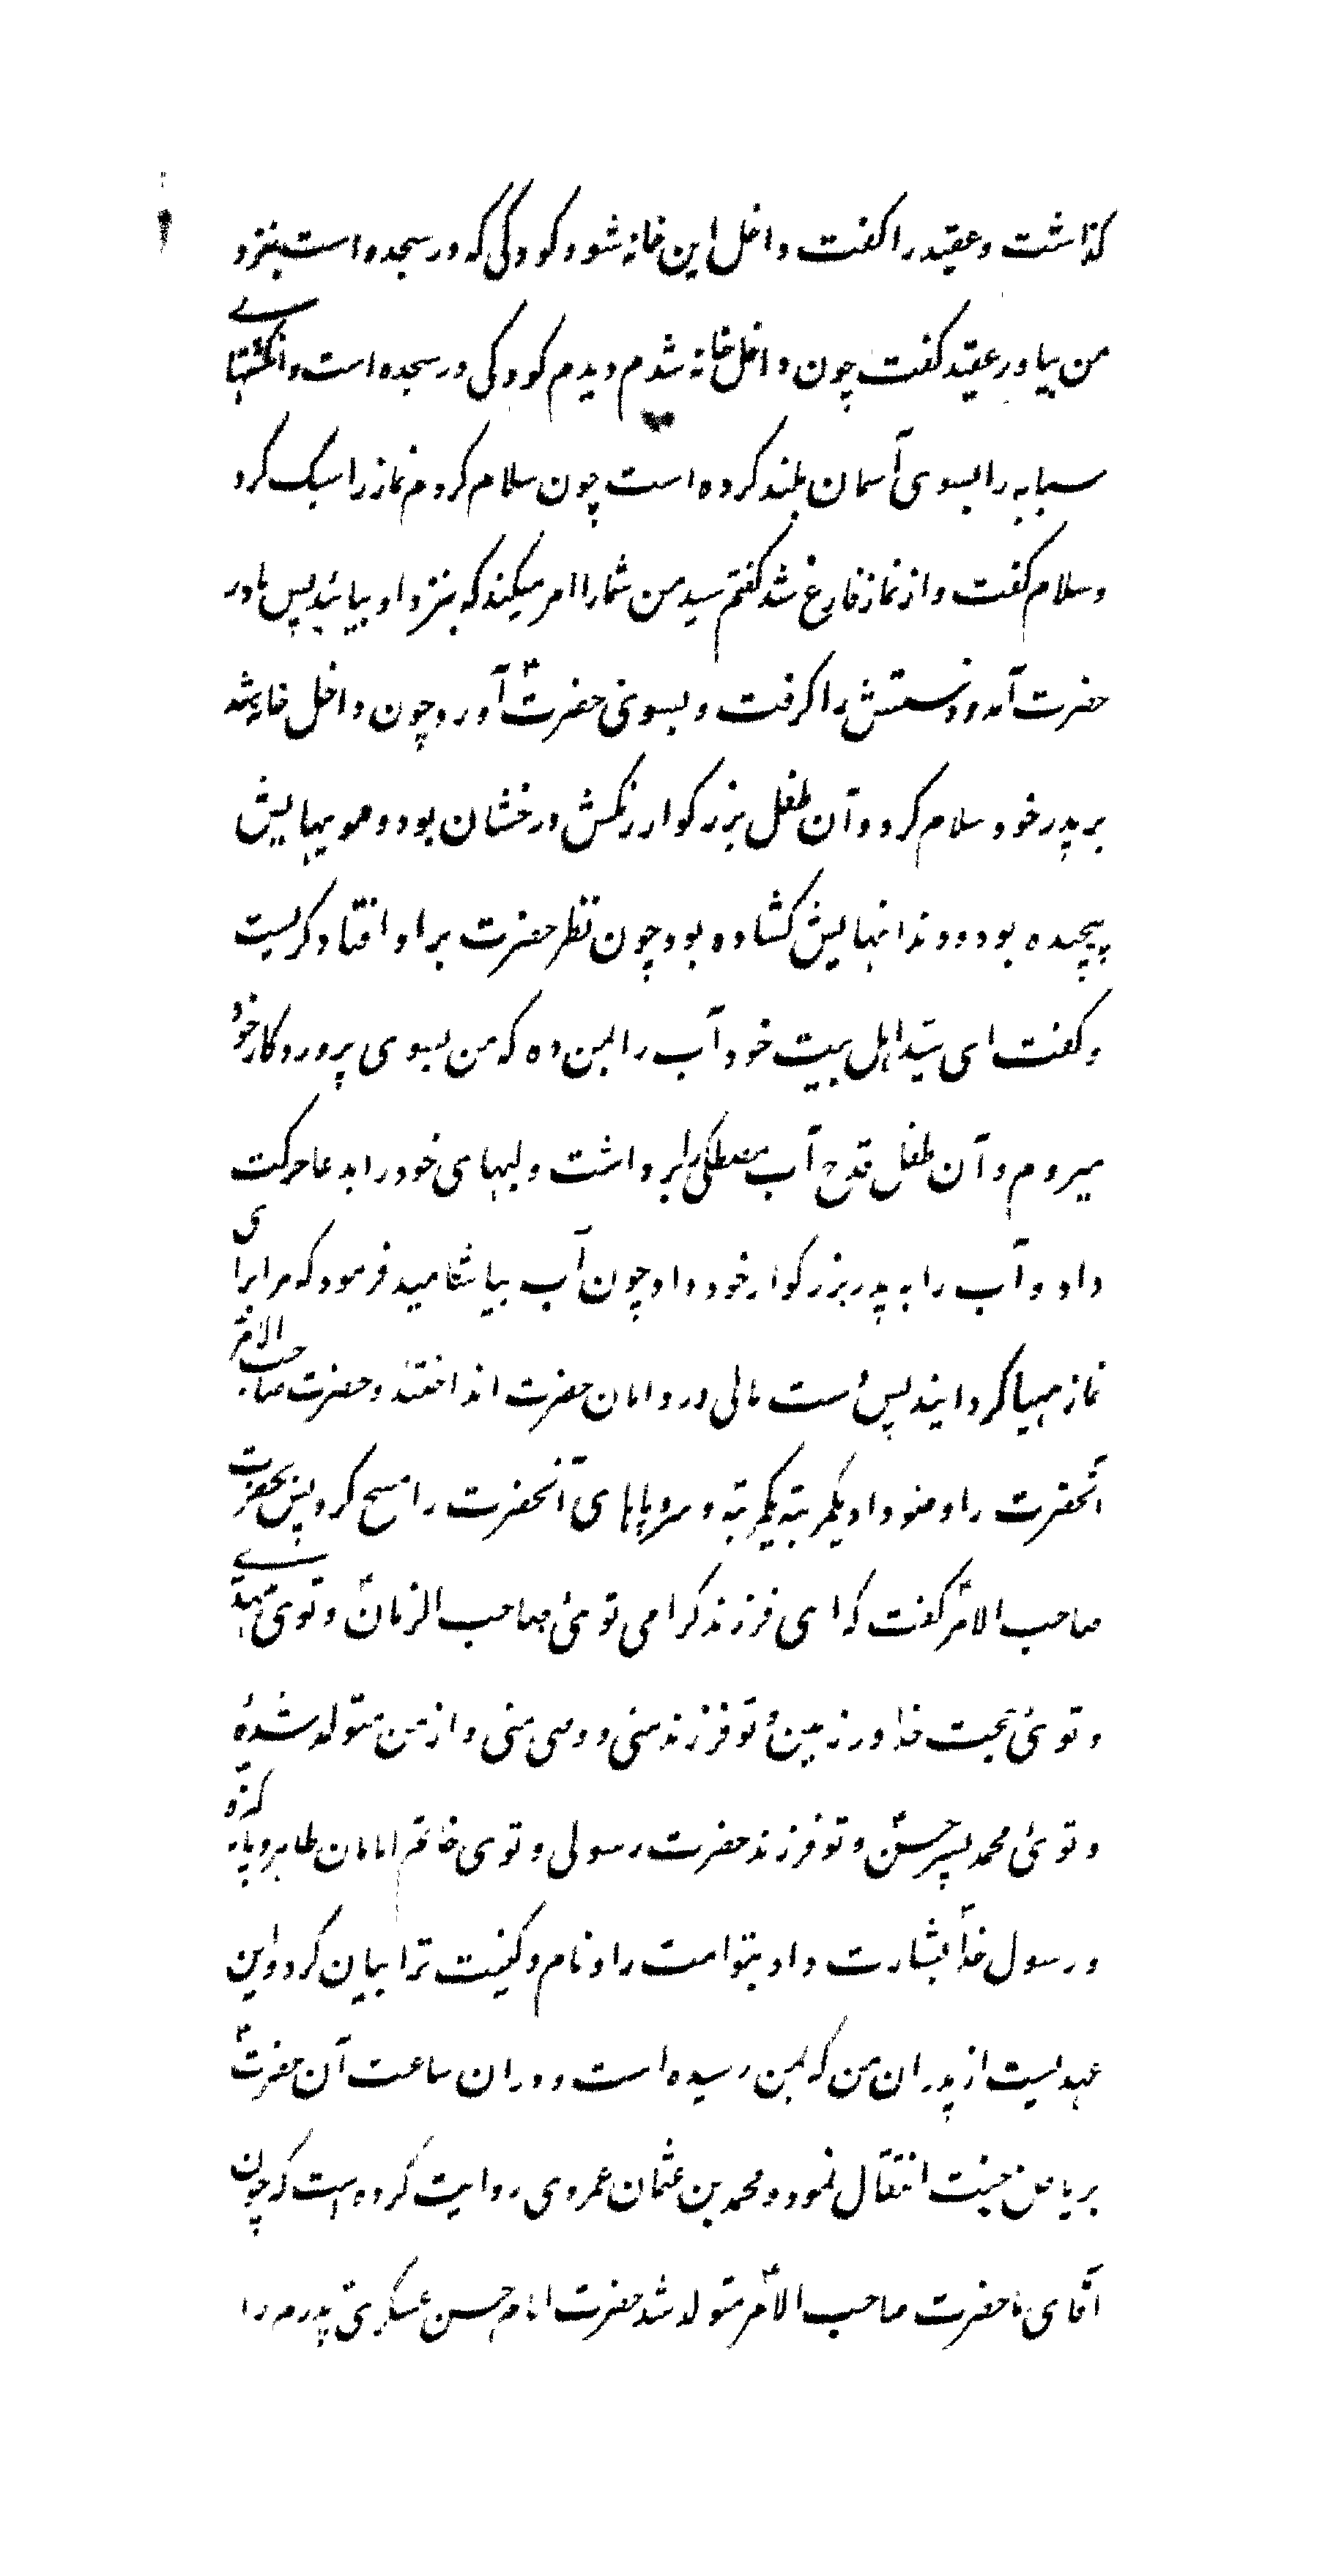 گذاشت و عقید را گفت داخل این خانه شو و کودکی که در سجده است بنزد
من بیاور عقید گفت چون داخل خانه شدم دیدم کودکی در سجده است و انگشتهای
سبابه را بسوی آسمان بلند کرده است چون سلام کردم نماز را سبک کرد
و سلام گفت و از نماز فارغ شد گفتم سید من شما را امر میکند که بنزد او بیائید پس مادر
حضرت آمد و دستش را گرفت و بسوی حضرتؑ آورد چون داخل خانه شد
بر پدر خود سلام کرد و آن طفل بزرگوار رنگش درخشان بود و مویهایش
پیچیده بود و دندانهایش گشاده بود چون نظر حضرت بر او افتاد گریست
و گفت ای سید اهل بیت خود آب را بمن ده که من بسوی پروردگار خود
میروم و آن طفل قدح آب مصطکی را برداشت و لبهای خود را بدعا حرکت
داد و آب را به پدر بزرگوار خود داد چون آب بیاشامید فرمود که مرا برای
نماز مهیا گردانید پس دست مالی در دامان حضرت انداختند و حضرت صاحب الامرؑ
آنحضرت را وضو داد یکمرتبه یکمرتبه و سر و پاهای آنحضرت را مسح کرد پس بحضرت
صاحب الامرؑ گفت که ای فرزند گرامی توئی صاحب الزمانؑ و توئی مهدی
و توئی حجت خدا در زمین و تو فرزند منی و وصی منی و از من متولد شدهٔ
و توئی محمد پسر حسنؑ و تو فرزند حضرت رسولی و توی خاتم امامان طاهر و پاکیزه
و رسول خداؐ بشارت داد بتو امت را و نام و کنیت ترا بیان کرد و این
عهدیست از پدران من که بمن رسیده است و در ان ساعت آن حضرتؑ
بریاض جنت انتقال نمود و محمد بن عثمان عمروی روایت کرده است که چون
آقای ما حضرت صاحب الامرؑ متولد شد حضرت امام حسن عسکریؑ پدرم را